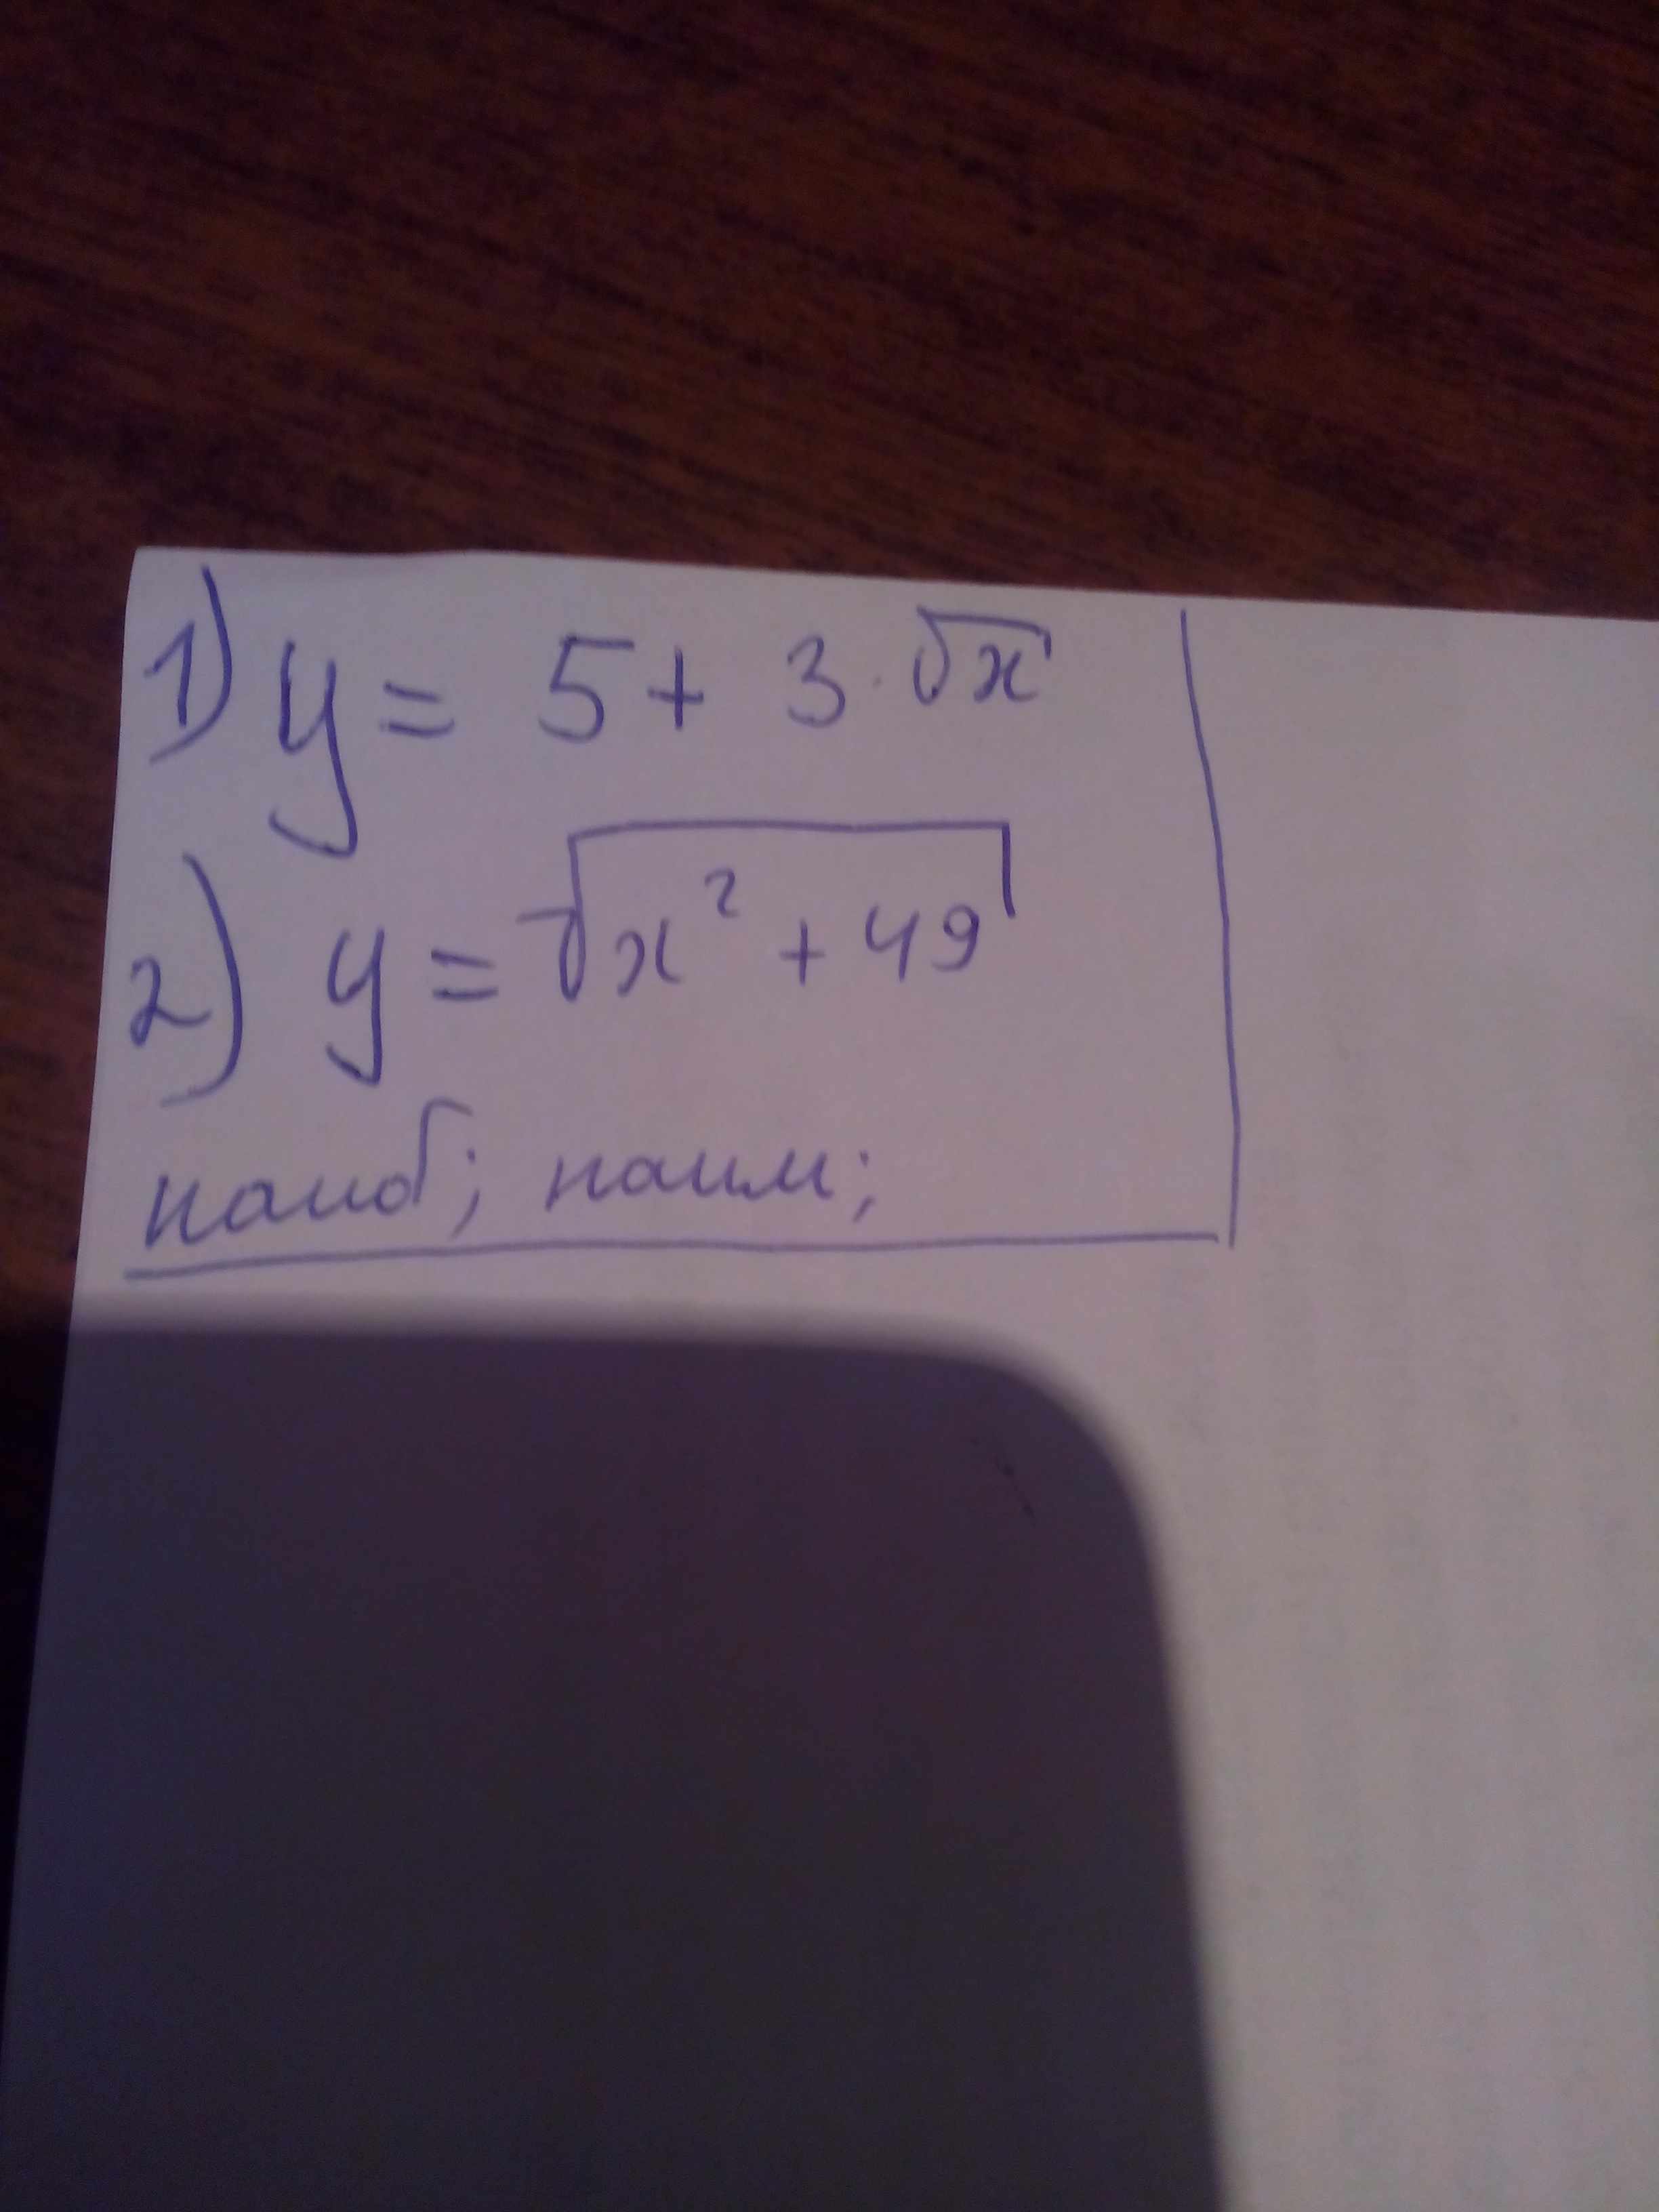 1) y = 5 + 3 · √x
2) y = √(x² + 49)
наиб; наим;